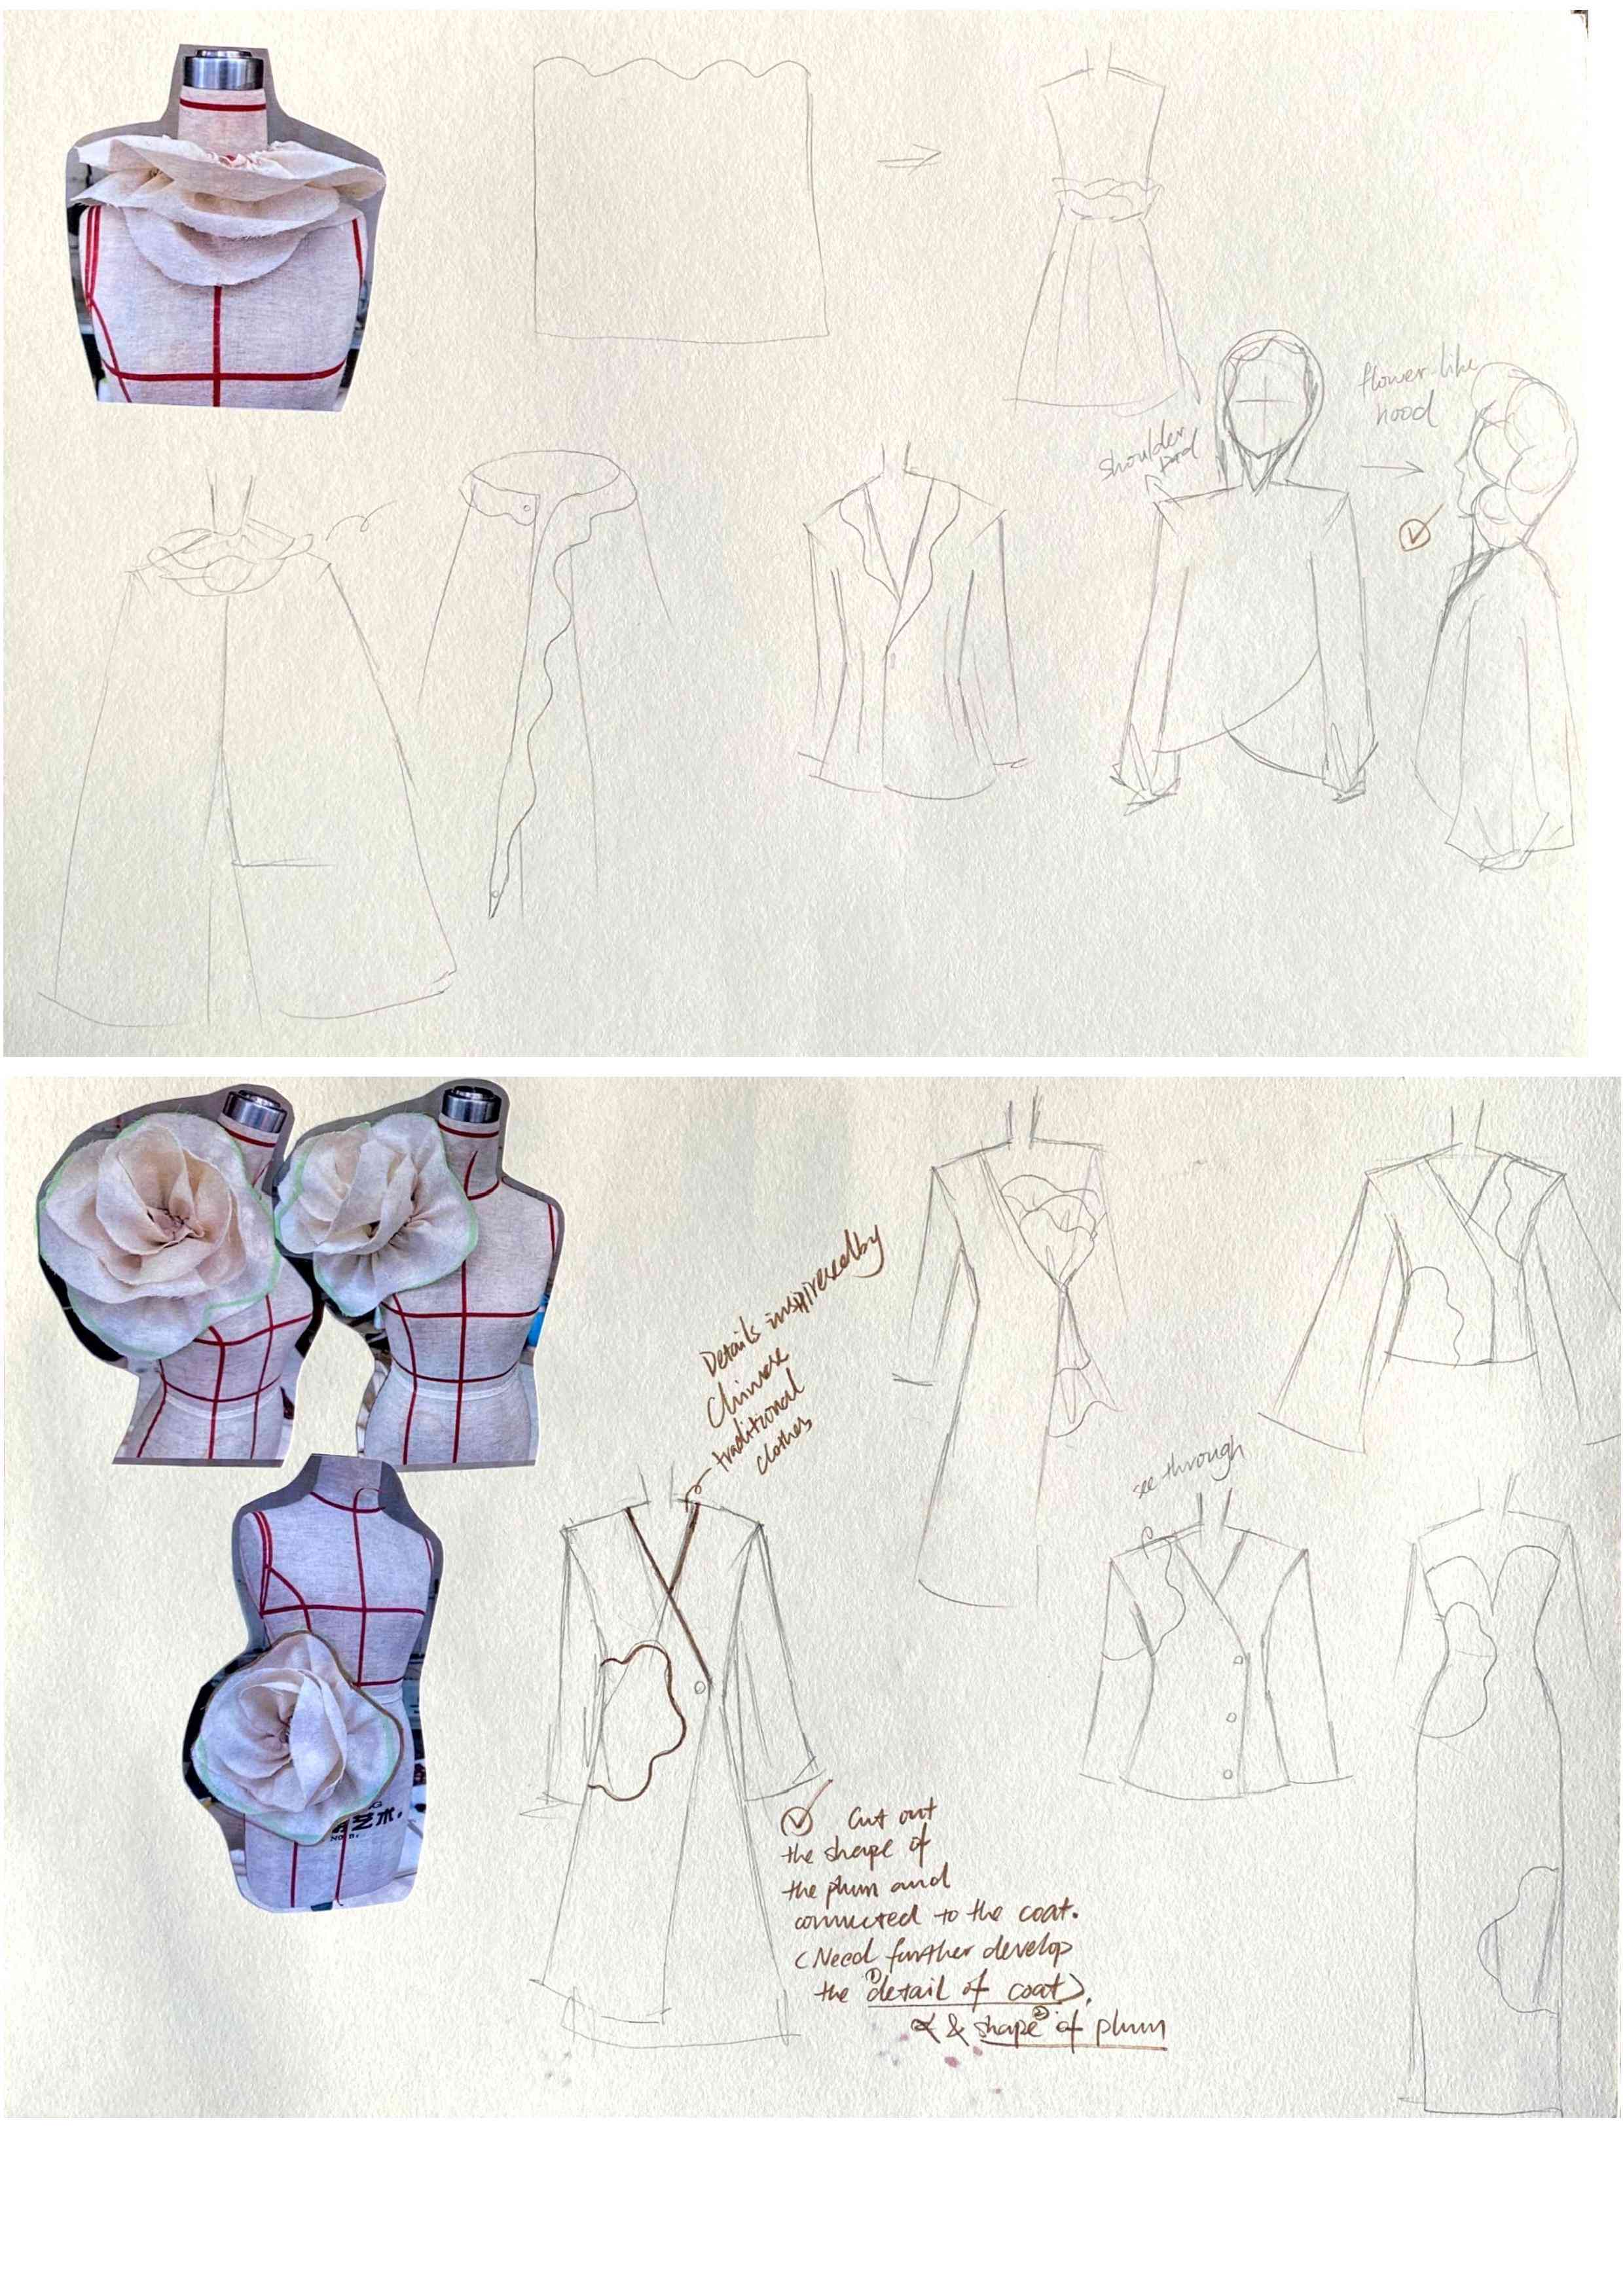 flower-like
hood
shoulder
pad
Details inspired by
Chinese
traditional
clothes
see through
艺术.
Cut out
the shape of
the plum and
connected to the coat.
(Need further develop
the ① detail of coat).
& shape ② of plum